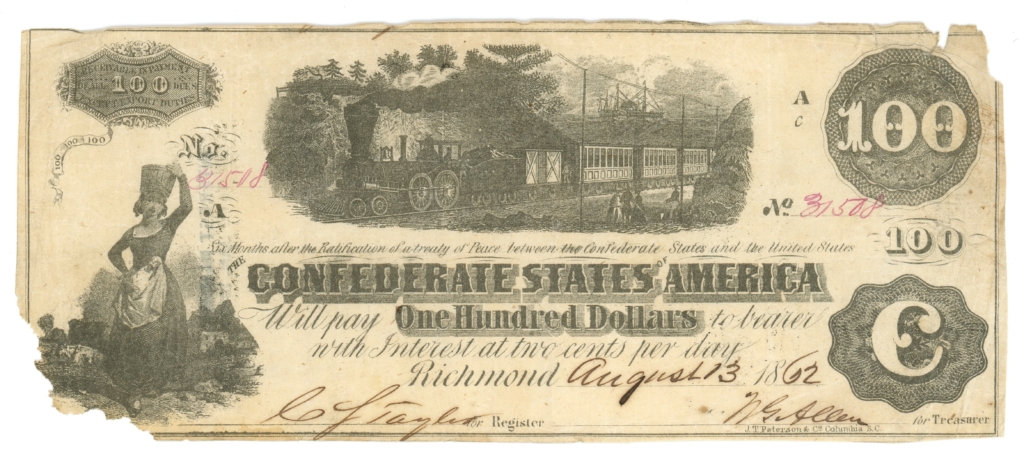 RECEIVABLE IN PAYMENT
OF ALL DUES
100
EXCEPT EXPORT DUTIES
100 100 100
No.
31508
A
A
C
100
No 31508
100
Six Months after the Ratification of a treaty of Peace between the Confederate States and the United States
THE
CONFEDERATE STATES OF AMERICA
Will pay One Hundred Dollars to bearer
with Interest at two cents per day
Richmond August 13 1862
C
for Register
for Treasurer
J.T. Paterson & Co Columbia S.C.